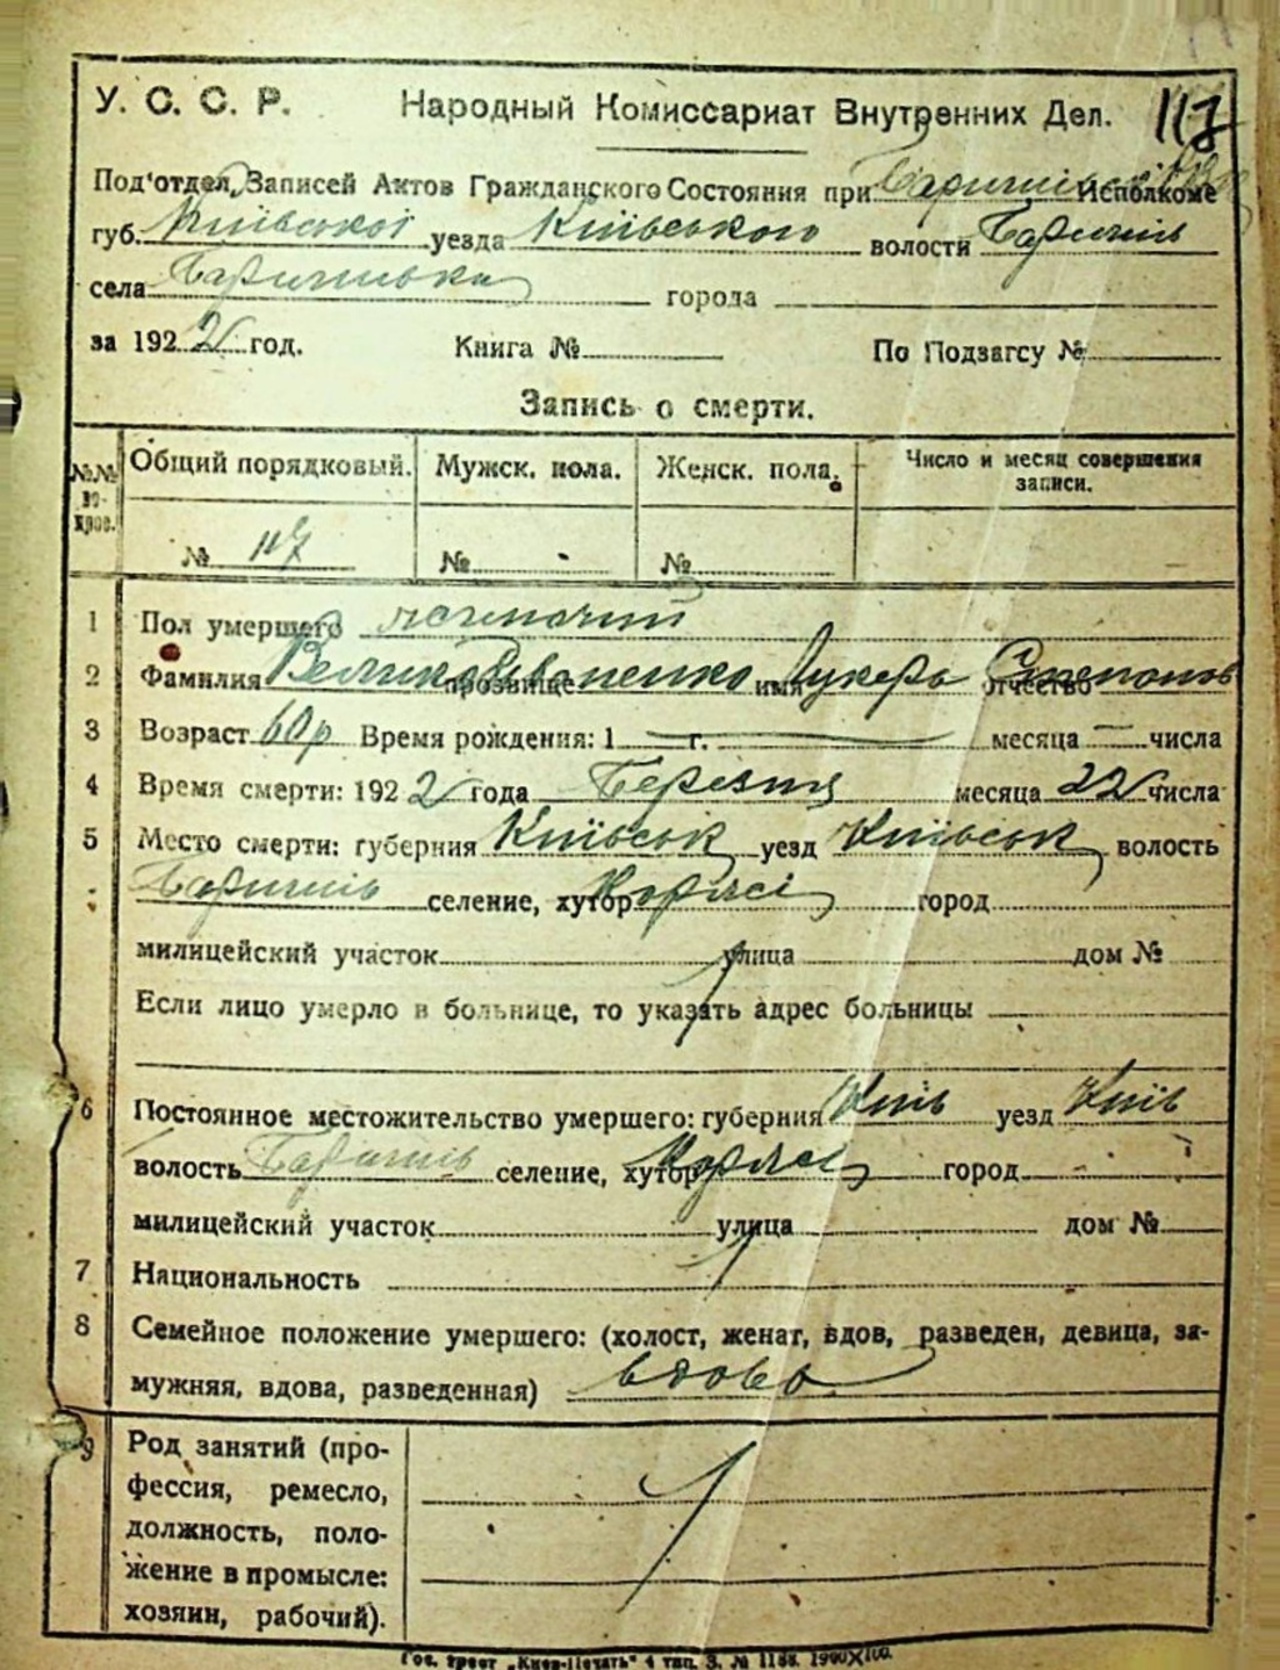 У. С. С. Р. Народный Комиссариат Внутренних Дел. 117
Под'отдел Записей Актов Гражданского Состояния при Исполкоме
губ. Київської уезда Київського волости Баришів
села Баришівка города
за 1922 год. Книга № По Подзагсу №
Запись о смерти.
№№ во- прос. Общий порядковый. Мужск. пола. Женск. пола. Число и месяц совершения записи.
№ 117 № №
1 Пол умершего
2 Фамилия прозвище имя Лукера отчество Степанов
3 Возраст 60 р Время рождения: 1 г. месяца числа
4 Время смерти: 1922 года Березня месяца 22 числа
5 Место смерти: губерния Київськ уезд Київськ волость
Баришів селение, хутор город
милицейский участок улица дом №
Если лицо умерло в больнице, то указать адрес больницы
6 Постоянное местожительство умершего: губерния Київ уезд Київ
волость Баришів селение, хутор город
милицейский участок улица дом №
7 Национальность
8 Семейное положение умершего: (холост, женат, вдов, разведен, девица, за-
мужняя, вдова, разведенная) вдова
9 Род занятий (про-
фессия, ремесло,
должность, поло-
жение в промысле:
хозяин, рабочий).
Гос. трест „Киев-Печать" 4 тип. З. № 1188.